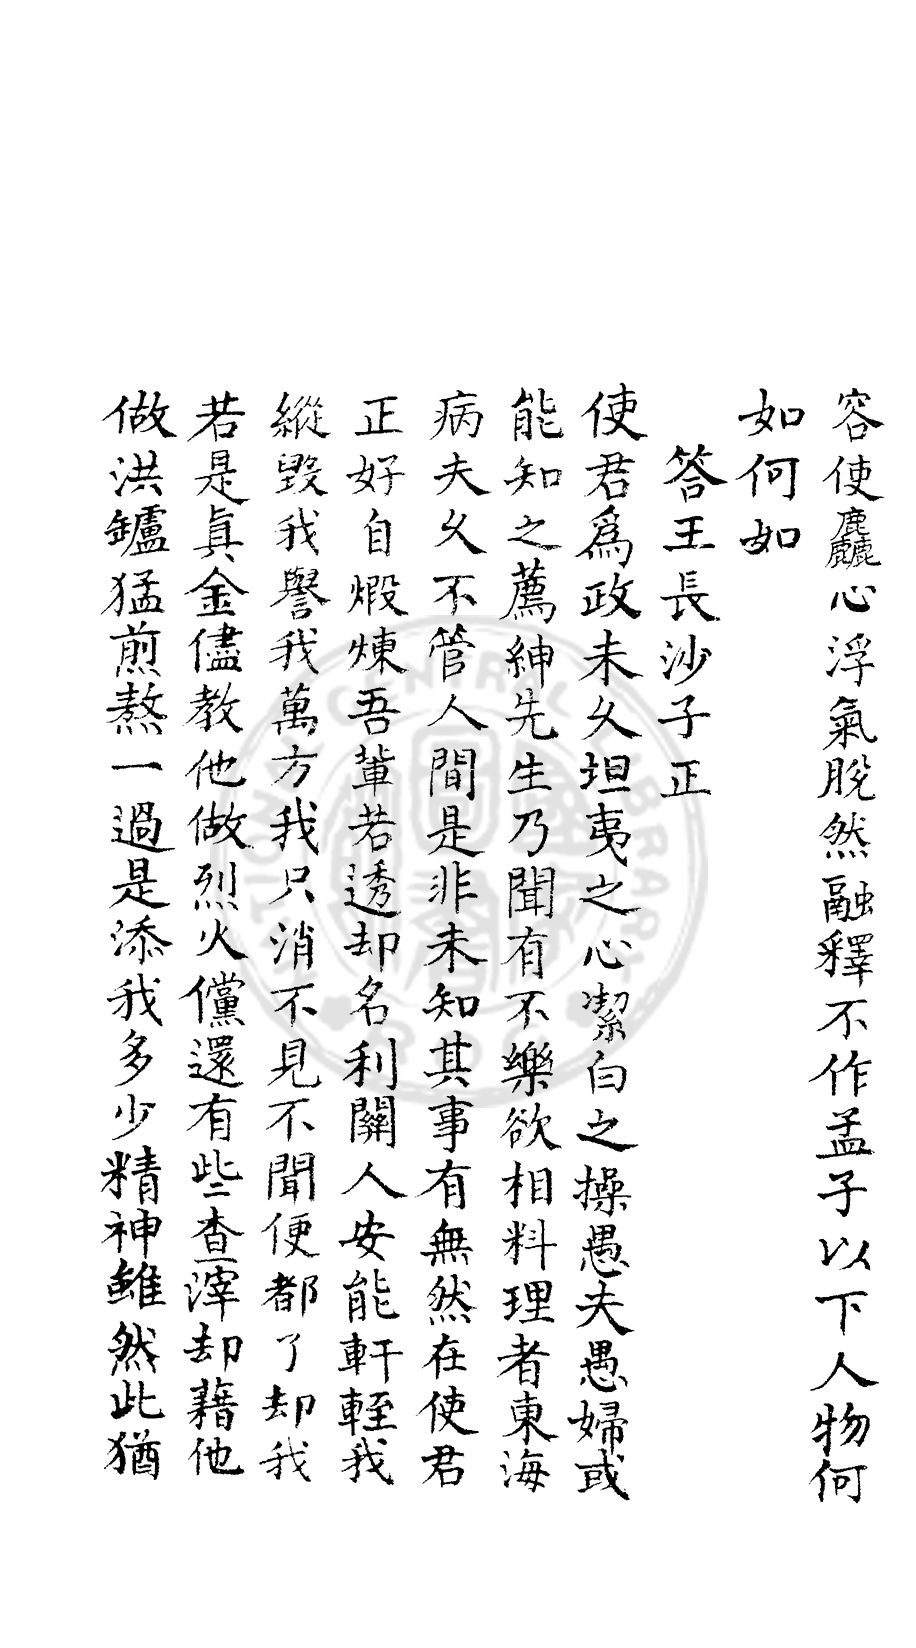 容使麤心浮氣脫然融釋不作孟子以下人物何
如何如
答王長沙子正
使君爲政未久坦夷之心潔白之操愚夫愚婦或
能知之薦紳先生乃聞有不樂欲相料理者東海
病夫久不管人間是非未知其事有無然在使君
正好自煅煉吾輩若透却名利關人安能軒輊我
縱毀我譽我萬方我只消不見不聞便都了却我
若是眞金儘教他做烈火儻還有些查滓却藉他
做洪鑪猛煎熬一過是添我多少精神雖然此猶
CENTRAL LIBRARY